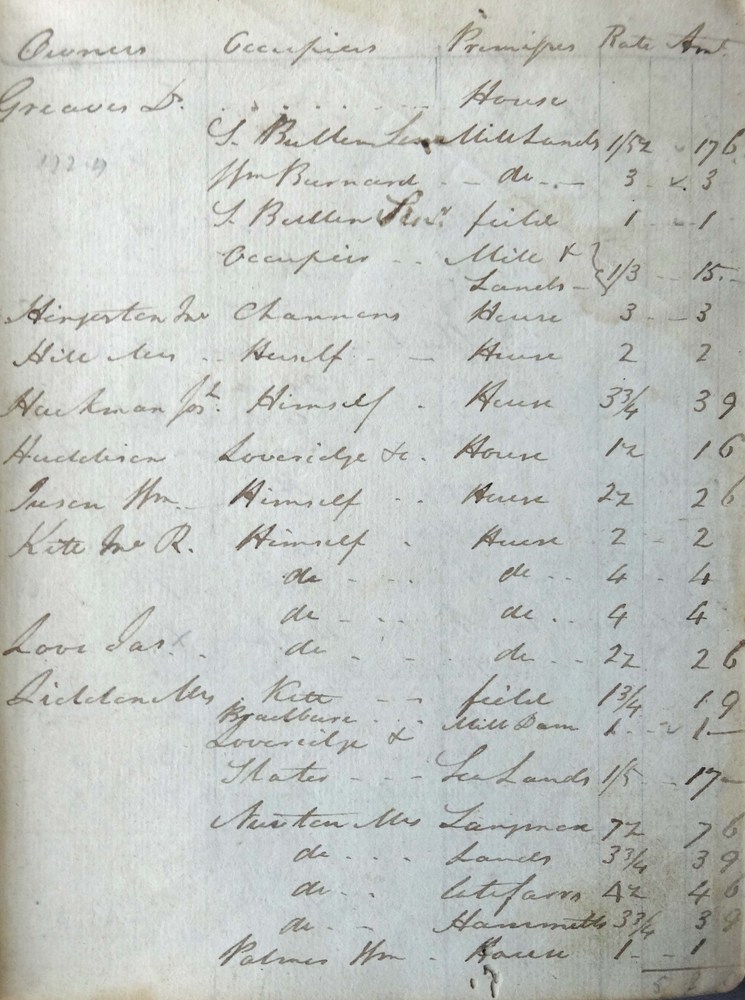 Owners Occupiers Premises Rate Amt.
Greaves Dr. House
S. Bullen Senr Mill Lands 1/5½ 17 6
Wm Burnard do 3 3
S. Bullen Senr. field 1 1
Occupiers Mill &
Lands 1/3 15
Hingerton Jno Channons House 3 3
Hill Mrs Herself House 2 2
Hackman Josh. Himself House 3¾ 3 9
Huddison Loveridge &c. House 1½ 1 6
Jusen Wm. Himself House 2½ 2 6
Kite Jno R. Himself House 2 2
do do 4 4
do do 4 4
Love Jas. do do 2½ 2 6
Liddon Mrs Kite field 1¾ 1 9
Bradbure Mill Dam 1 1
Loveridge &
Slater Lands 1/5 17
Newton Mrs Langmoor 7½ 7 6
do Lands 3¾ 3 9
do 4½ 4 6
do Hammetts 3¾ 3 9
Palmer Wm House 1 1